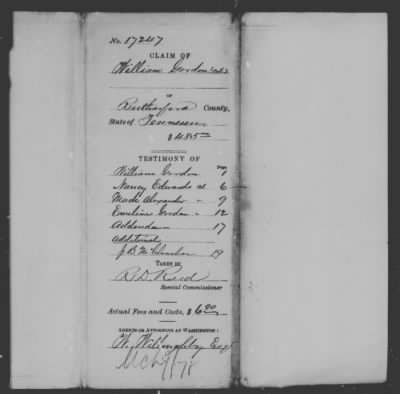 No. 17247
CLAIM OF
William Gordon (col.)
OF
Rutherford County,
State of Tennessee
$485.00
TESTIMONY OF
Page
William Gordon 1
Nancy Edwards col 6
Wade Alexander " 9
Emeline Gordon " 12
Addenda 17
Additional
J. B. McClanahan 19
TAKEN BY
R. D. Reed
Special Commissioner
Actual Fees and Costs, $6.90
LODGED OR ATTORNEYS AT WASHINGTON:
W. Willoughby Esq